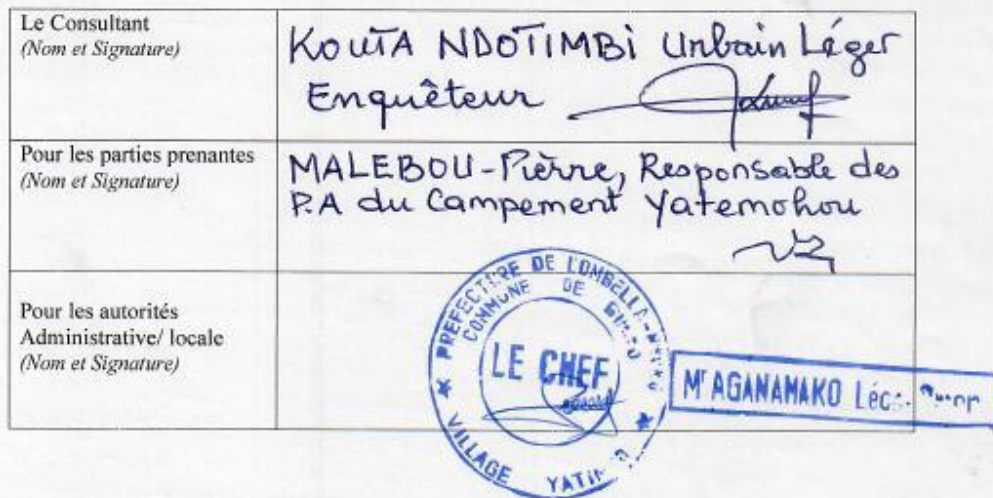 Le Consultant
(Nom et Signature)
KOUTA NDOTIMBI Urbain Léger
Enquêteur
Pour les parties prenantes
(Nom et Signature)
MALEBOU-Pièrre, Responsable des
P.A du Campement Yatemohou
Pour les autorités
Administrative/ locale
(Nom et Signature)
PREFECTURE DE L'OMBELLA-MPOKO
COMMUNE DE
LE CHEF
VILLAGE
Mr AGANAMAKO